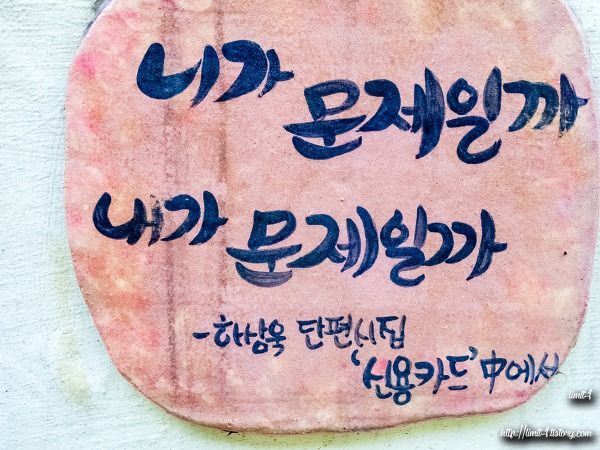 니가 문제일까
내가 문제일까
-하상욱 단편시집
'신용카드' 中에서
limit-4
http://limit-4.tistory.com